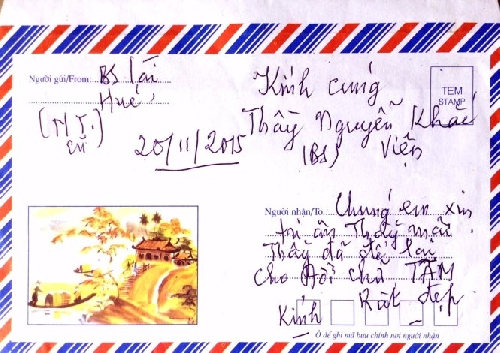 Người gửi/From: BS Tài
Huế
20/11/2015
Kính cúng
Thầy Nguyễn Khắc
(BS) Viện
TEM
STAMP
Người nhận/To: Chúng em xin
tri ân Thầy mãi.
Thầy đã để lại
cho đời chữ TÂM
Rất đẹp
Kính
Ô để ghi mã bưu chính nơi người nhận